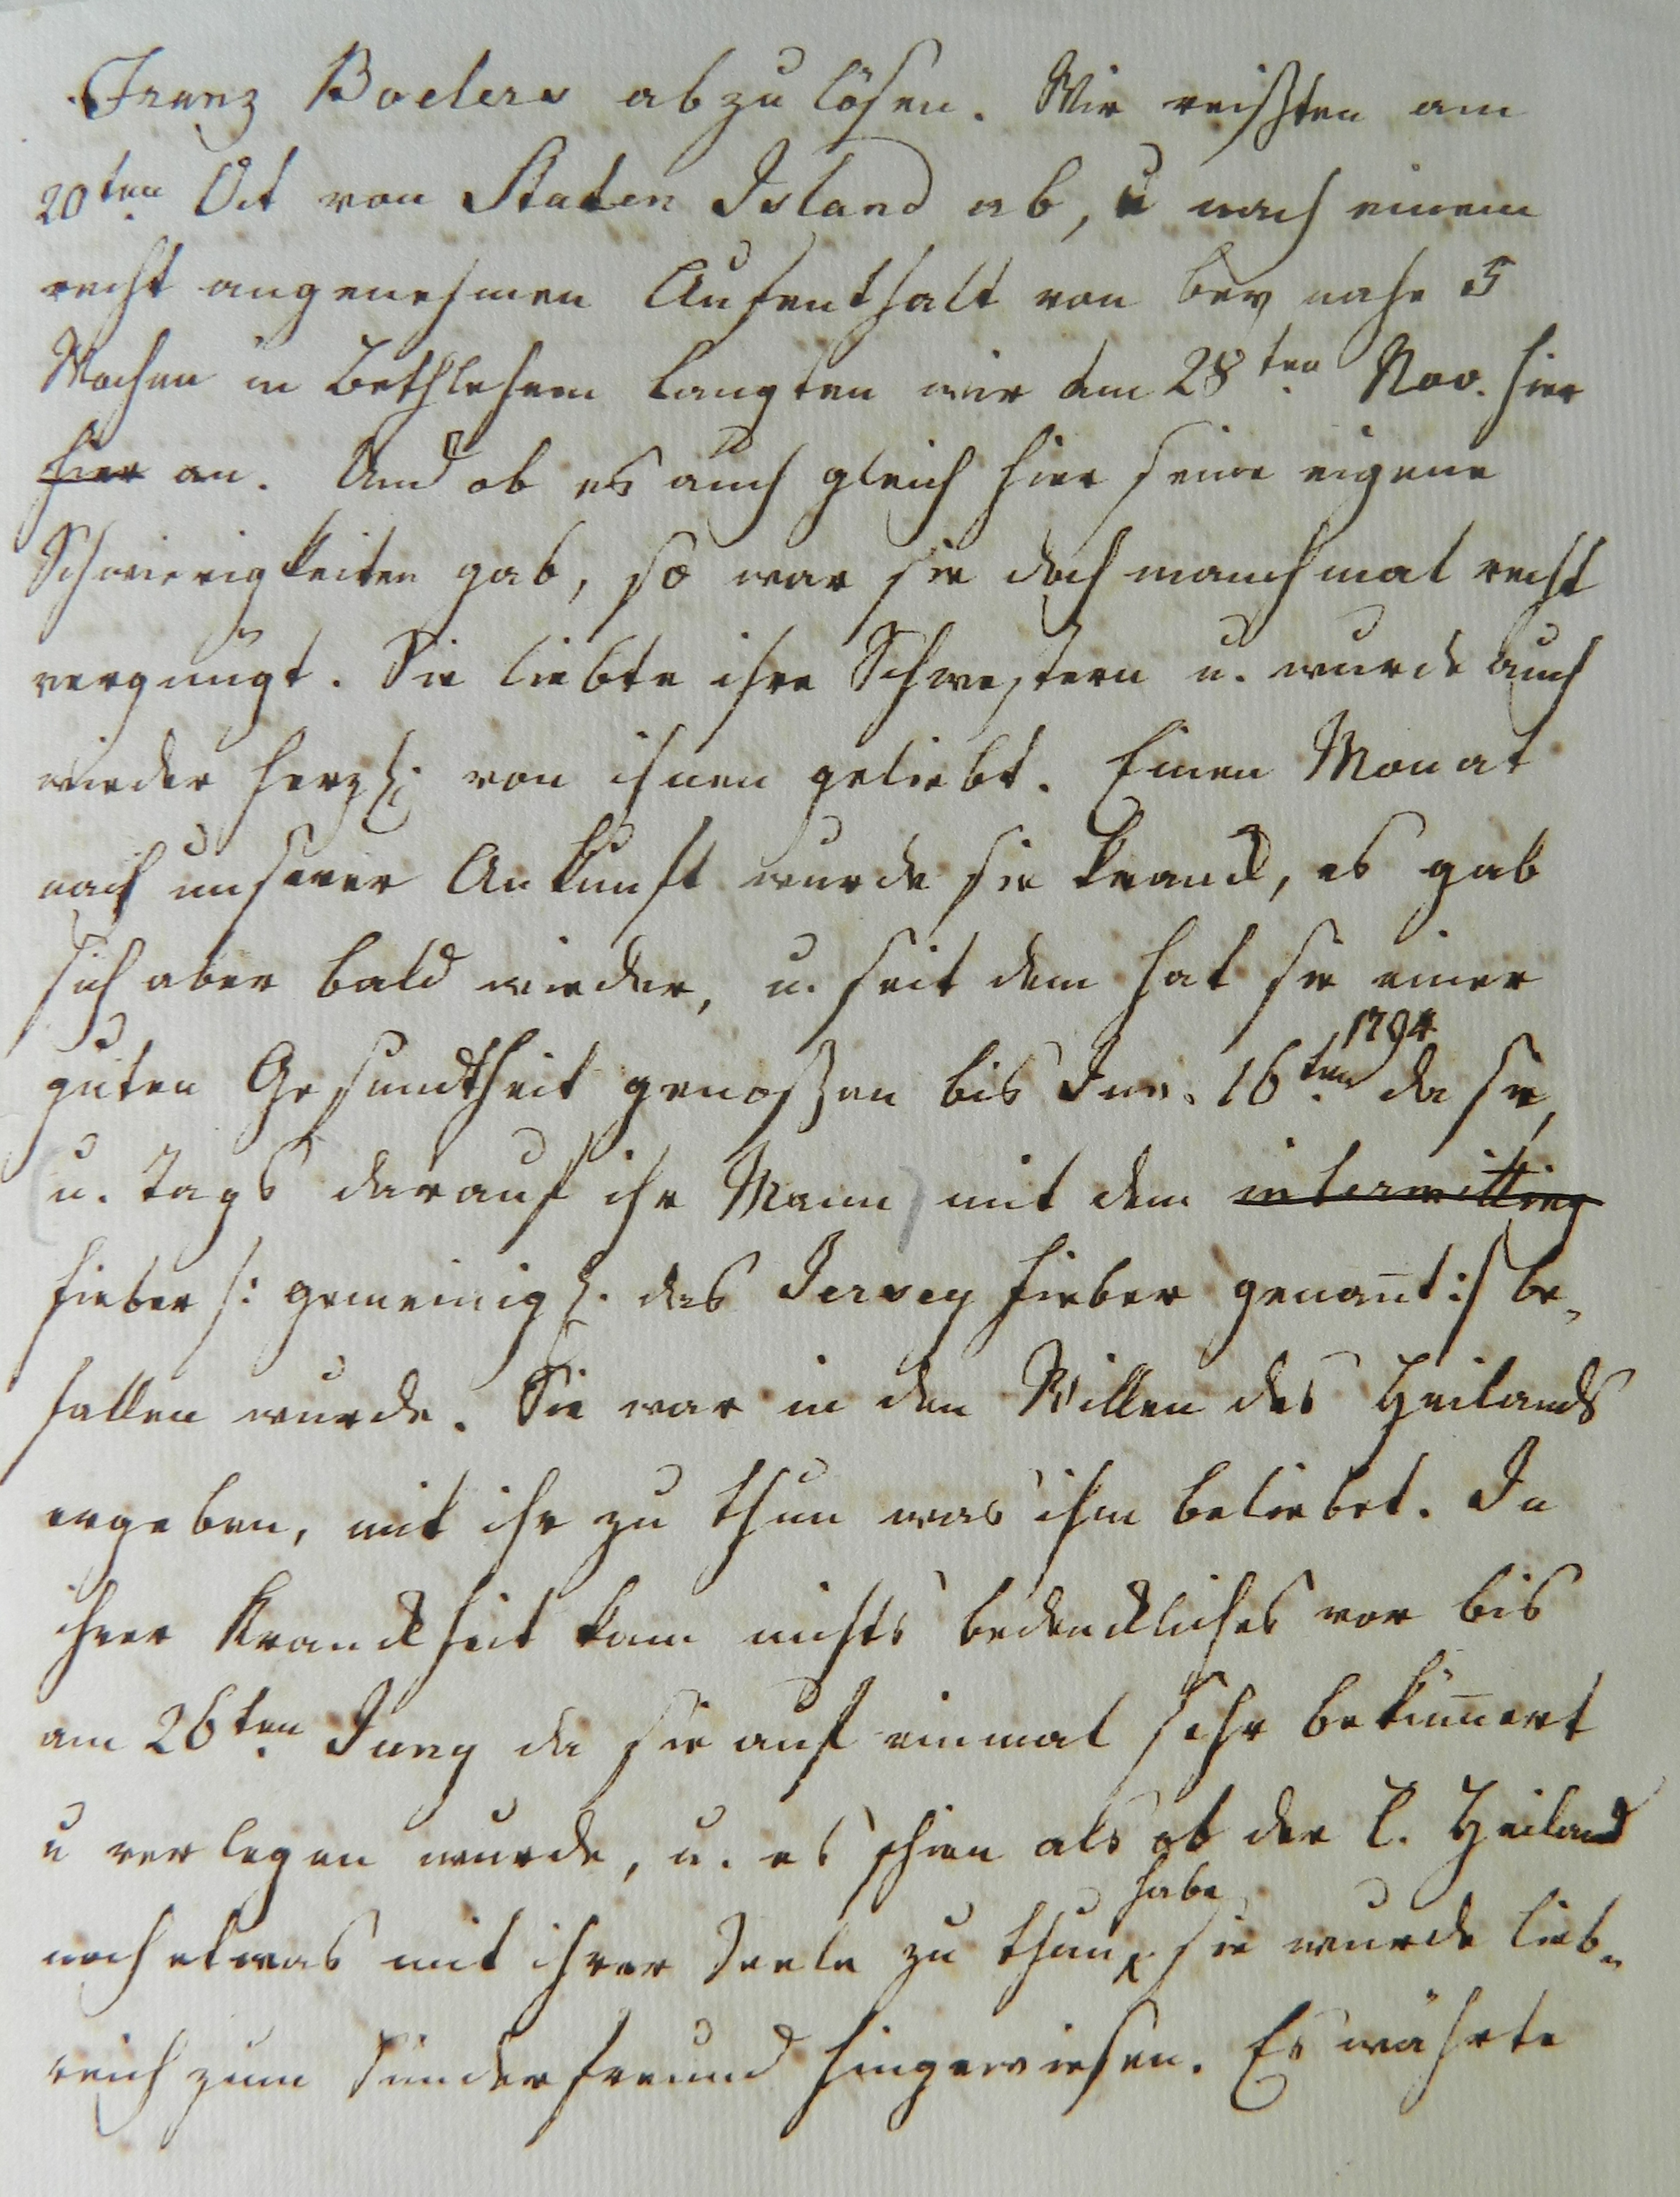 Franz Boelers abzulösen. Wir reißten am
20ten Oct von Staten Island ab, u nach einem
recht angenehmen Aufenthalt von bey nahe 5
Wochen in Bethlehem langten wir am 28ten Nov. hier
hier an. Und ob es auch gleich hier seine eigene
Schwierigkeiten gab, so war sie doch manchmal recht
vergnügt. Sie liebte ihre Schwestern u. wurde auch
wieder herzl. von ihnen geliebt. Einen Monat
nach unserer Ankunft wurde sie kranck, es gab
sich aber bald wieder, u. seit dem hat sie einer
guten Gesundtheit genoßen bis Jun. 16ten 1794 da sie,
(u. tags darauf ihr Mann) mit dem intermitting
fieber /: gemeinigl. das Jersey fieber genan̄t :/ be-
fallen wurde. Sie war in den Willen des Heilands
ergeben, mit ihr zu thun was ihm beliebet. In
ihrer Kranckheit kam nichts bedenckliches vor bis
am 26ten Juny da sie auf einmal sehr beküm̄ert
u verlegen wurde, u. es schien als ob der l. Heiland
noch etwas mit ihrer Seele zu thun habe, sie wurde lieb-
reich zum Sünderfreund hingewiesen. Es währte